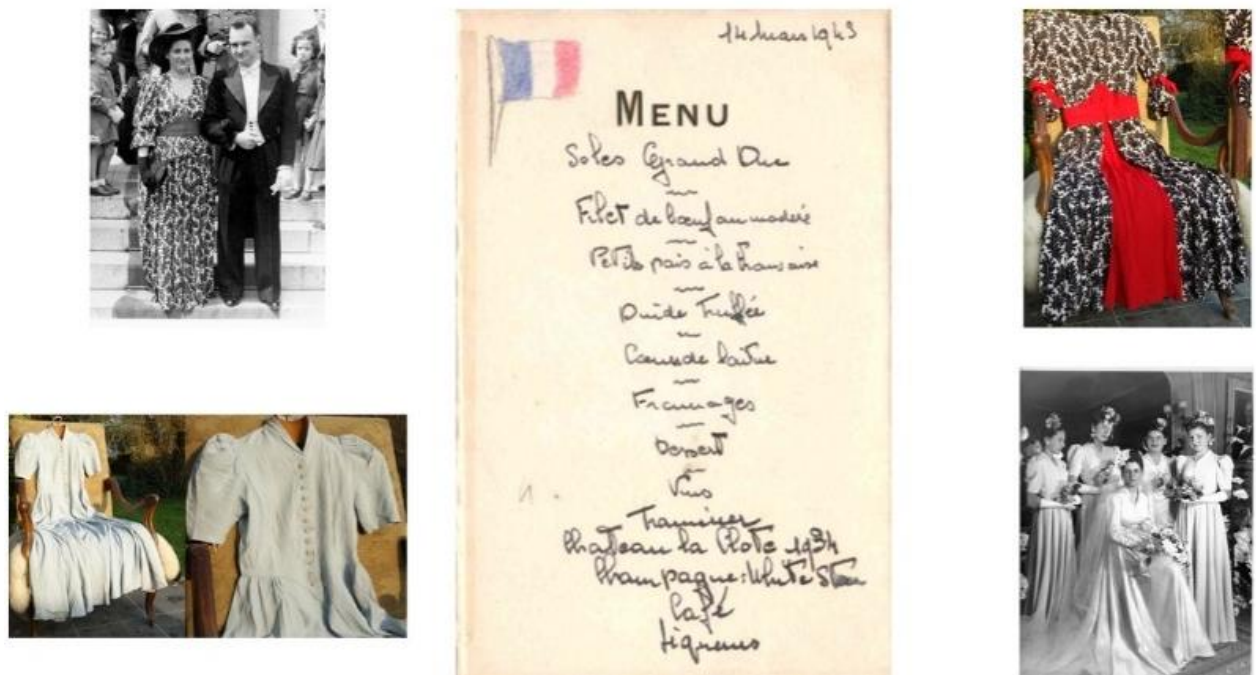 14 Mars 1943
MENU
Soles Grand Duc
Filet de bœuf au madère
Petits pois à la française
Dinde Truffée
Cœurs de laitue
Fromages
Dessert
Vins
Traminer
Chateau la Clote 1934
Champagne: White Star
Café
Liqueurs